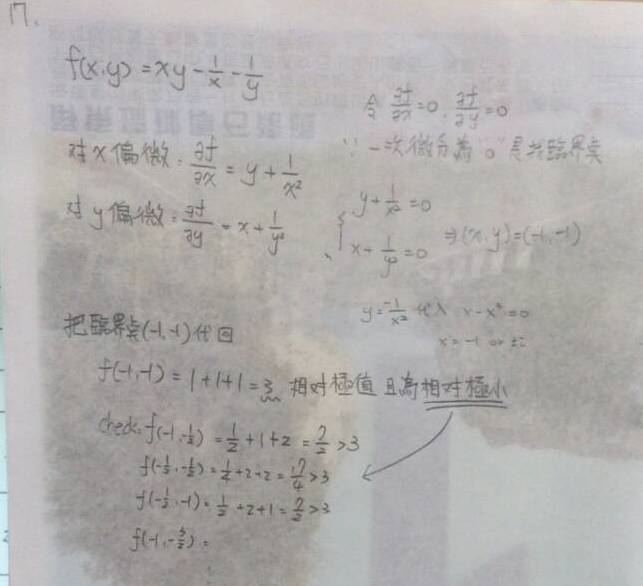 17.
f(x,y) = xy - 1/x - 1/y
令 ∂f/∂x = 0, ∂f/∂y = 0
∵ 一次微分為 "0" 是其臨界點
對 x 偏微: ∂f/∂x = y + 1/x²
對 y 偏微: ∂f/∂y = x + 1/y²
{ y + 1/x² = 0
x + 1/y² = 0 ⇒ (x,y) = (-1,-1)
y = -1/x² 代入 x - x⁴ = 0
x = -1 or
把臨界點(-1,-1)代回
f(-1,-1) = 1+1+1 = 3 相對極值 且為相對極小
check: f(-1,-1/2) = 1/2 + 1 + 2 = 7/2 > 3
f(-1/2,-1/2) = 1/4 + 2 + 2 = 17/4 > 3
f(-1/2,-1) = 1/2 + 2 + 1 = 7/2 > 3
f(-1,-3/2) =